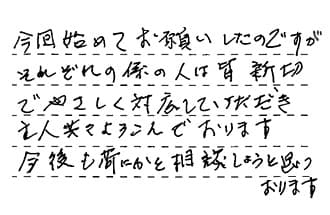 今回始めてお願いしたのですが
それぞれの係の人は皆新切
でやさしく対応していただき
主人共々よろこんでおります
今後も何にかと相談しようと思つ
おります